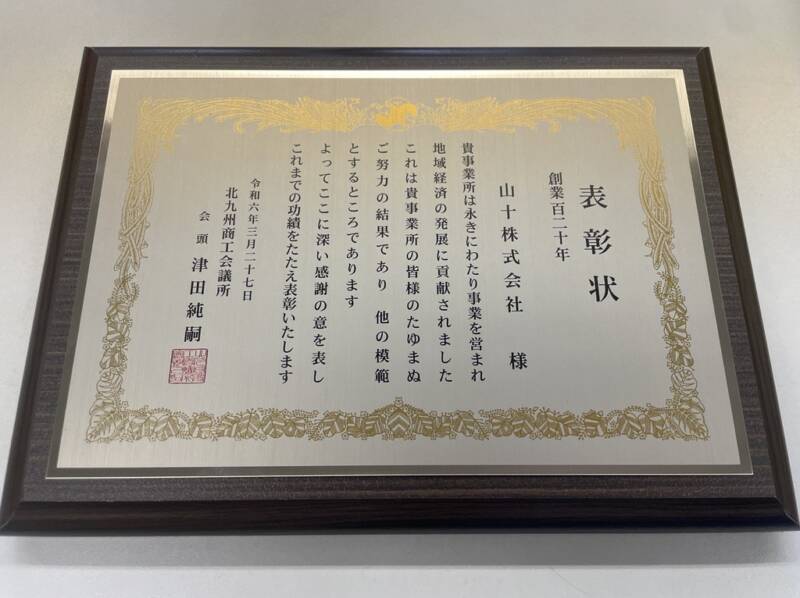 表彰状
創業百二十年
山十株式会社 様
貴事業所は永きにわたり事業を営まれ
地域経済の発展に貢献されました
これは貴事業所の皆様のたゆまぬ
ご努力の結果であり 他の模範
とするところであります
よってここに深い感謝の意を表し
これまでの功績をたたえ表彰いたします
令和六年三月二十七日
北九州商工会議所
会頭 津田純嗣